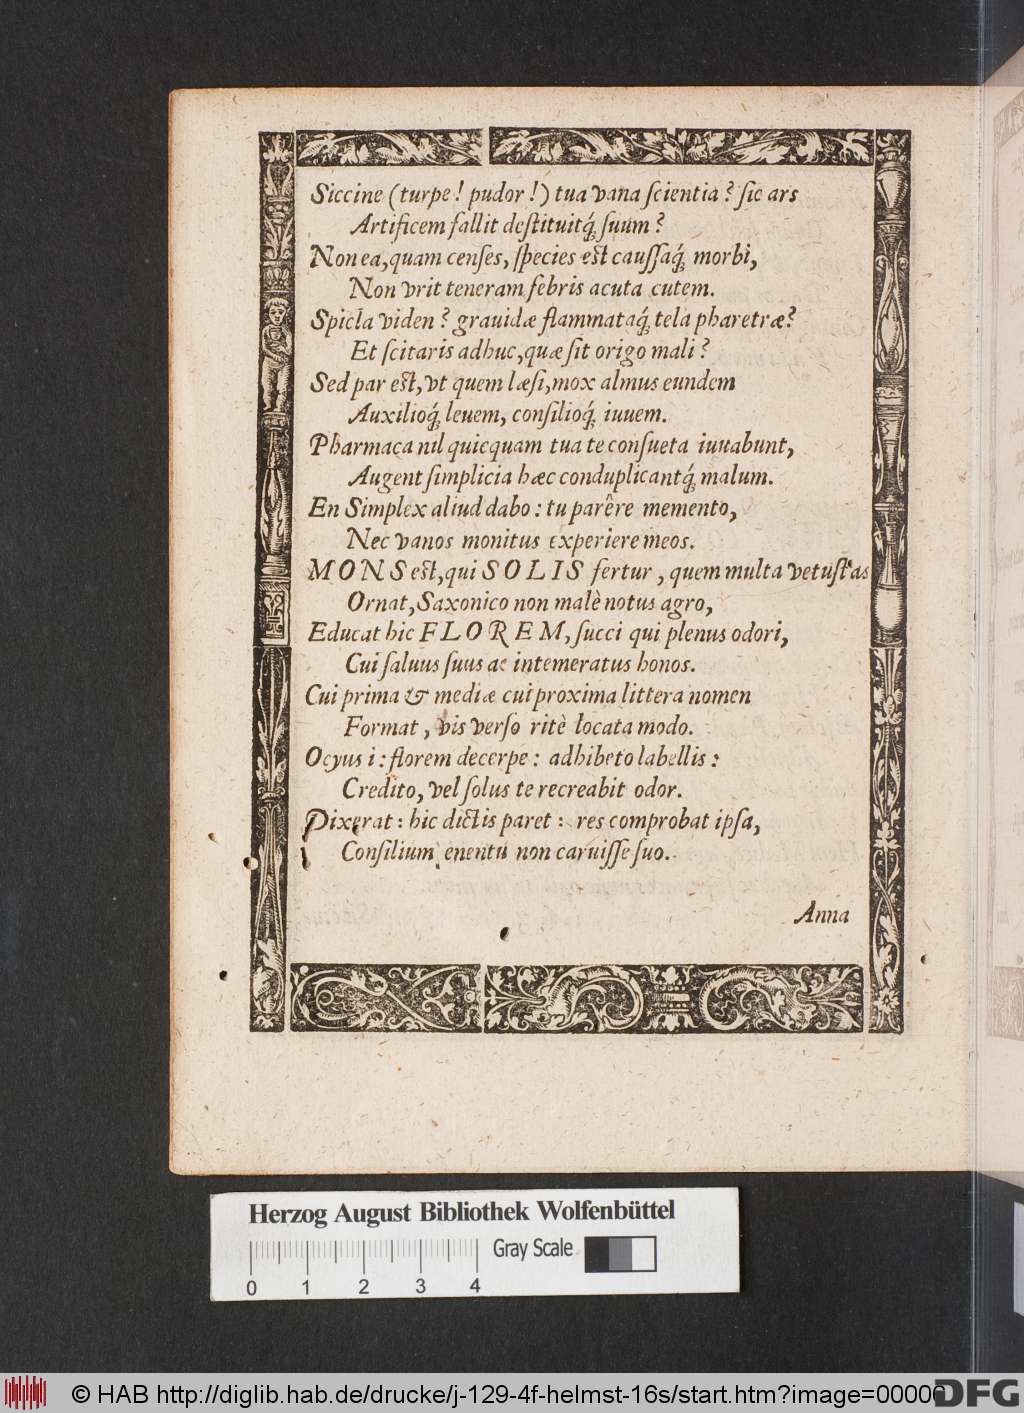 Siccine (turpe! pudor!) tua vana scientia? sic ars
Artificem fallit destituitq́; suum?
Non ea, quam censes, species est caussaq́; morbi,
Non vrit teneram febris acuta cutem.
Spicla viden? grauidæ flammataq́; tela pharetræ?
Et scitaris adhuc, quæ sit origo mali?
Sed par est, vt quem læsi, mox almus eundem
Auxilioq́; leuem, consilioq́; iuuem.
Pharmaca nil quicquam tua te consueta iuuabunt,
Augent simplicia hæc conduplicantq́; malum.
En Simplex aliud dabo: tu parêre memento,
Nec vanos monitus experiere meos.
MONS est, qui SOLIS fertur, quem multa vetustas
Ornat, Saxonico non malè notus agro,
Educat hic FLOREM, succi qui plenus odori,
Cui saluus suus ac intemeratus honos.
Cui prima & mediæ cui proxima littera nomen
Format, vis verso ritè locata modo.
Ocyus i: florem decerpe: adhibeto labellis:
Credito, vel solus te recreabit odor.
Dixerat: hic dictis paret: res comprobat ipsa,
Consilium euentu non caruisse suo.
Anna
Herzog August Bibliothek Wolfenbüttel
Gray Scale
0 1 2 3 4
© HAB http://diglib.hab.de/drucke/j-129-4f-helmst-16s/start.htm?image=00000
DFG